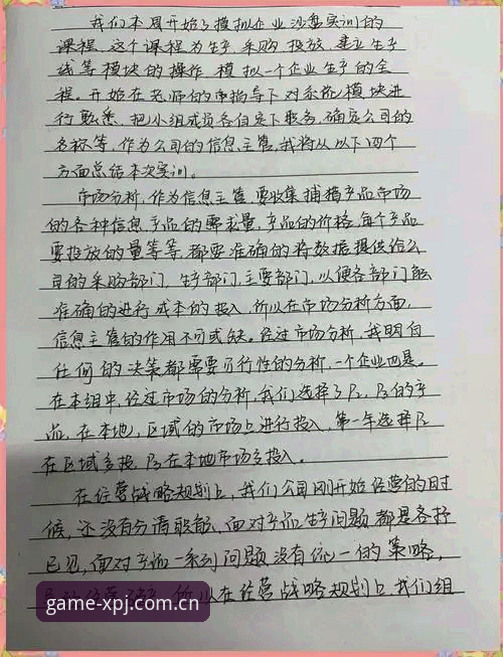 我们本周开始了模拟企业沙盘实训的
课程，这个课程为生产，采购，投放，建立生产
线等模块的操作，模拟一个企业生产的全
程。开始在老师的指导下对系统模块进
行熟悉，把小组成员各自定下职务，确定公司的
名称等，作为公司的信息主管，我将从以下四个
方面总结本次实训。
市场分析，作为信息主管，要收集捕捉产品市场
的各种信息，产品的需求量，产品的价格，每个产品
要投放的量等等，都要准确的将数据提供给公
司的采购部门，生产部门，主要部门，以便各部门能
准确的进行成本的投入，所以在市场分析方面，
信息主管的作用不可或缺。经过市场分析，我明白
任何的决策都需要可行性的分析，一个企业四是。
在本组中，经过市场的分析，我们选择了P2，P3的产
品，在本地，区域的市场上进行投入，第一年选择P2
在区域多投，P3在本地市场多投入。
在经营战略规划上，我们公司刚开始经营的时
候，还没有分清职能，面对产品生产问题都是各抒
已见，面对产品一系列问题没有统一的策略，
所以在经营战略规划上我们组
game-xpj.com.cn